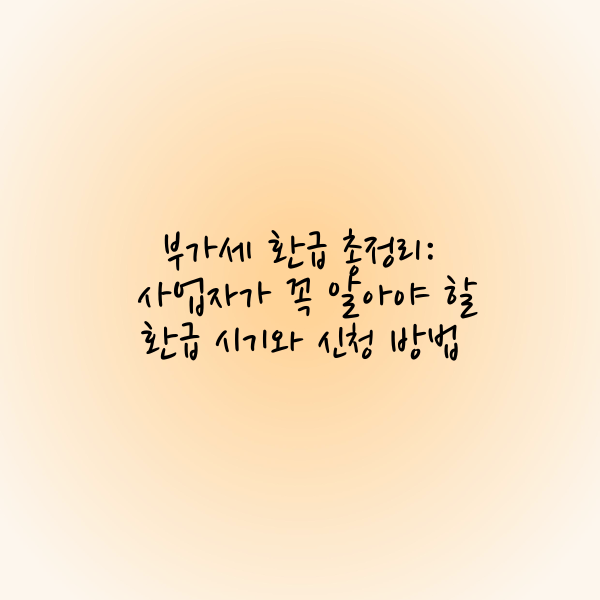 부가세 환급 총정리:
사업자가 꼭 알아야 할
환급 시기와 신청 방법